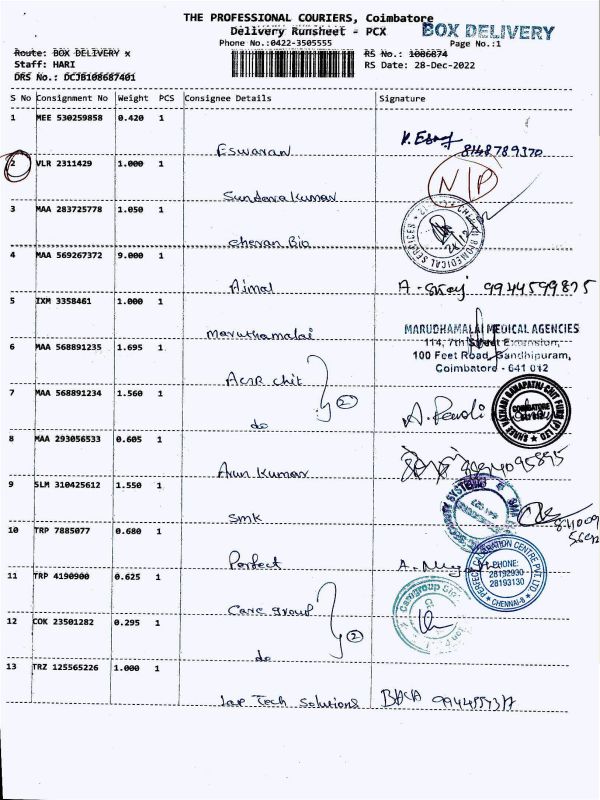 THE PROFESSIONAL COURIERS, Coimbatore
BOX DELIVERY
Delivery Runsheet - PCX
Phone No.:0422-3505555
Page No.:1
Route: BOX DELIVERY x
RS No.: 1086874
Staff: HARI
RS Date: 28-Dec-2022
DRS No.: DCJB108687401
S No Consignment No Weight PCS Consignee Details Signature
1 MEE 530259858 0.420 1
Eswaran 8148789370
2 VLR 2311429 1.000 1
Sundarakumar N/P
3 MAA 283725778 1.050 1
cheran Bio
BIOMEDICAL SERVICES
4 MAA 569267372 9.000 1
Aimal 9944599875
5 IXM 3358461 1.000 1
maruthamalai MARUDHAMALAI MEDICAL AGENCIES
114, 7th Street Extension,
100 Feet Road, Gandhipuram,
Coimbatore - 641 012
6 MAA 568891235 1.695 1
chit
7 MAA 568891234 1.560 1
do 2
COIMBATORE
8 MAA 293056533 0.605 1
Arun Kumar
9 SLM 310425612 1.550 1
SMK
10 TRP 7885077 0.680 1
Perfect
PHONE:
28192930
28193130
CHENNAI-8
11 TRP 4190900 0.625 1
Care group
12 COK 23501282 0.295 1
do 2
13 TRZ 125565226 1.000 1
Tech Solutions